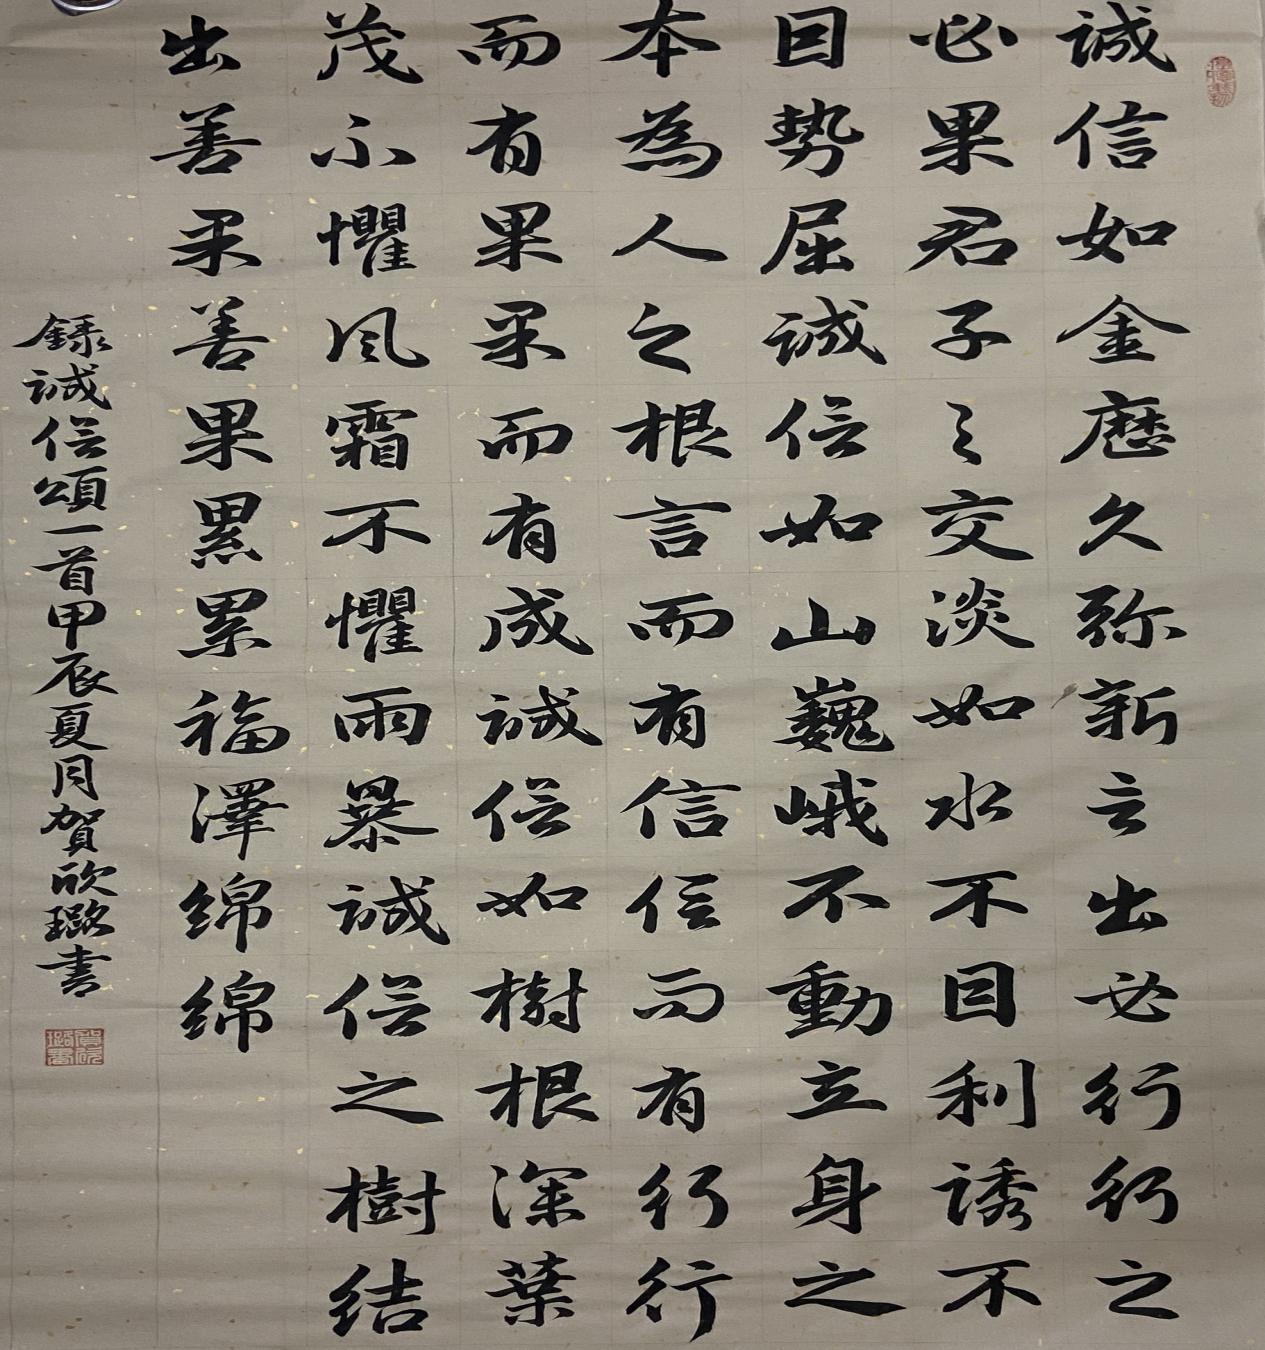 誠信如金歷久弥新言出必行行之
必果君子之交淡如水不因利誘不
因勢屈誠信如山巍峨不動立身之
本為人之根言而有信信而有行行
而有果果而有成誠信如樹根深葉
茂不懼風霜不懼雨暴誠信之樹結
出善果善果累累福澤綿綿
錄誠信頌一首甲辰夏月賀欣璐書